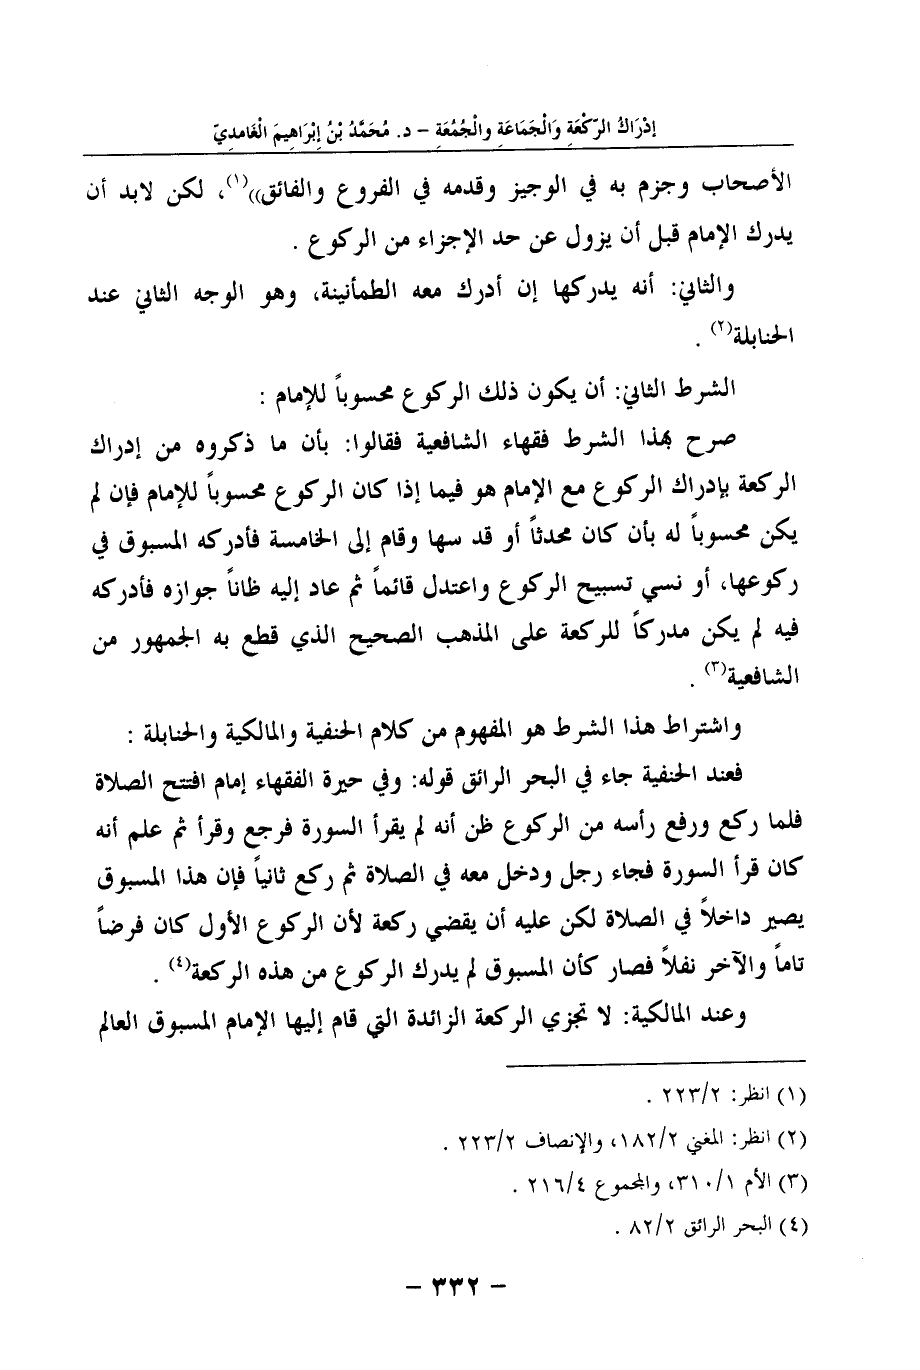 إِدْرَاكُ الرَّكْعَةِ وَالْجَمَاعَةِ والْجُمُعَةِ – د. مُحَمَّدُ بْنُ إِبْرَاهِيمَ الْغَامِدِيّ
الأصحاب وجزم به في الوجيز وقدمه في الفروع والفائق))(١)، لكن لابد أن
يدرك الإمام قبل أن يزول عن حد الإجزاء من الركوع .
والثاني: أنه يدركها إن أدرك معه الطمأنينة، وهو الوجه الثاني عند
الحنابلة(٢) .
الشرط الثاني: أن يكون ذلك الركوع محسوباً للإمام :
صرح بهذا الشرط فقهاء الشافعية فقالوا: بأن ما ذكروه من إدراك
الركعة بإدراك الركوع مع الإمام هو فيما إذا كان الركوع محسوباً للإمام فإن لم
يكن محسوباً له بأن كان محدثاً أو قد سها وقام إلى الخامسة فأدركه المسبوق في
ركوعها، أو نسي تسبيح الركوع واعتدل قائماً ثم عاد إليه ظاناً جوازه فأدركه
فيه لم يكن مدركاً للركعة على المذهب الصحيح الذي قطع به الجمهور من
الشافعية(٣) .
واشتراط هذا الشرط هو المفهوم من كلام الحنفية والمالكية والحنابلة :
فعند الحنفية جاء في البحر الرائق قوله: وفي حيرة الفقهاء إمام افتتح الصلاة
فلما ركع ورفع رأسه من الركوع ظن أنه لم يقرأ السورة فرجع وقرأ ثم علم أنه
كان قرأ السورة فجاء رجل ودخل معه في الصلاة ثم ركع ثانياً فإن هذا المسبوق
يصير داخلاً في الصلاة لكن عليه أن يقضي ركعة لأن الركوع الأول كان فرضاً
تاماً والآخر نفلاً فصار كأن المسبوق لم يدرك الركوع من هذه الركعة(٤) .
وعند المالكية: لا تجزي الركعة الزائدة التي قام إليها الإمام المسبوق العالم
(١) انظر: ٢٢٣/٢ .
(٢) انظر: المغني ١٨٢/٢، والإنصاف ٢٢٣/٢ .
(٣) الأم ٣١٠/١، والمجموع ٢١٦/٤ .
(٤) البحر الرائق ٨٢/٢ .
– ٣٣٢ –